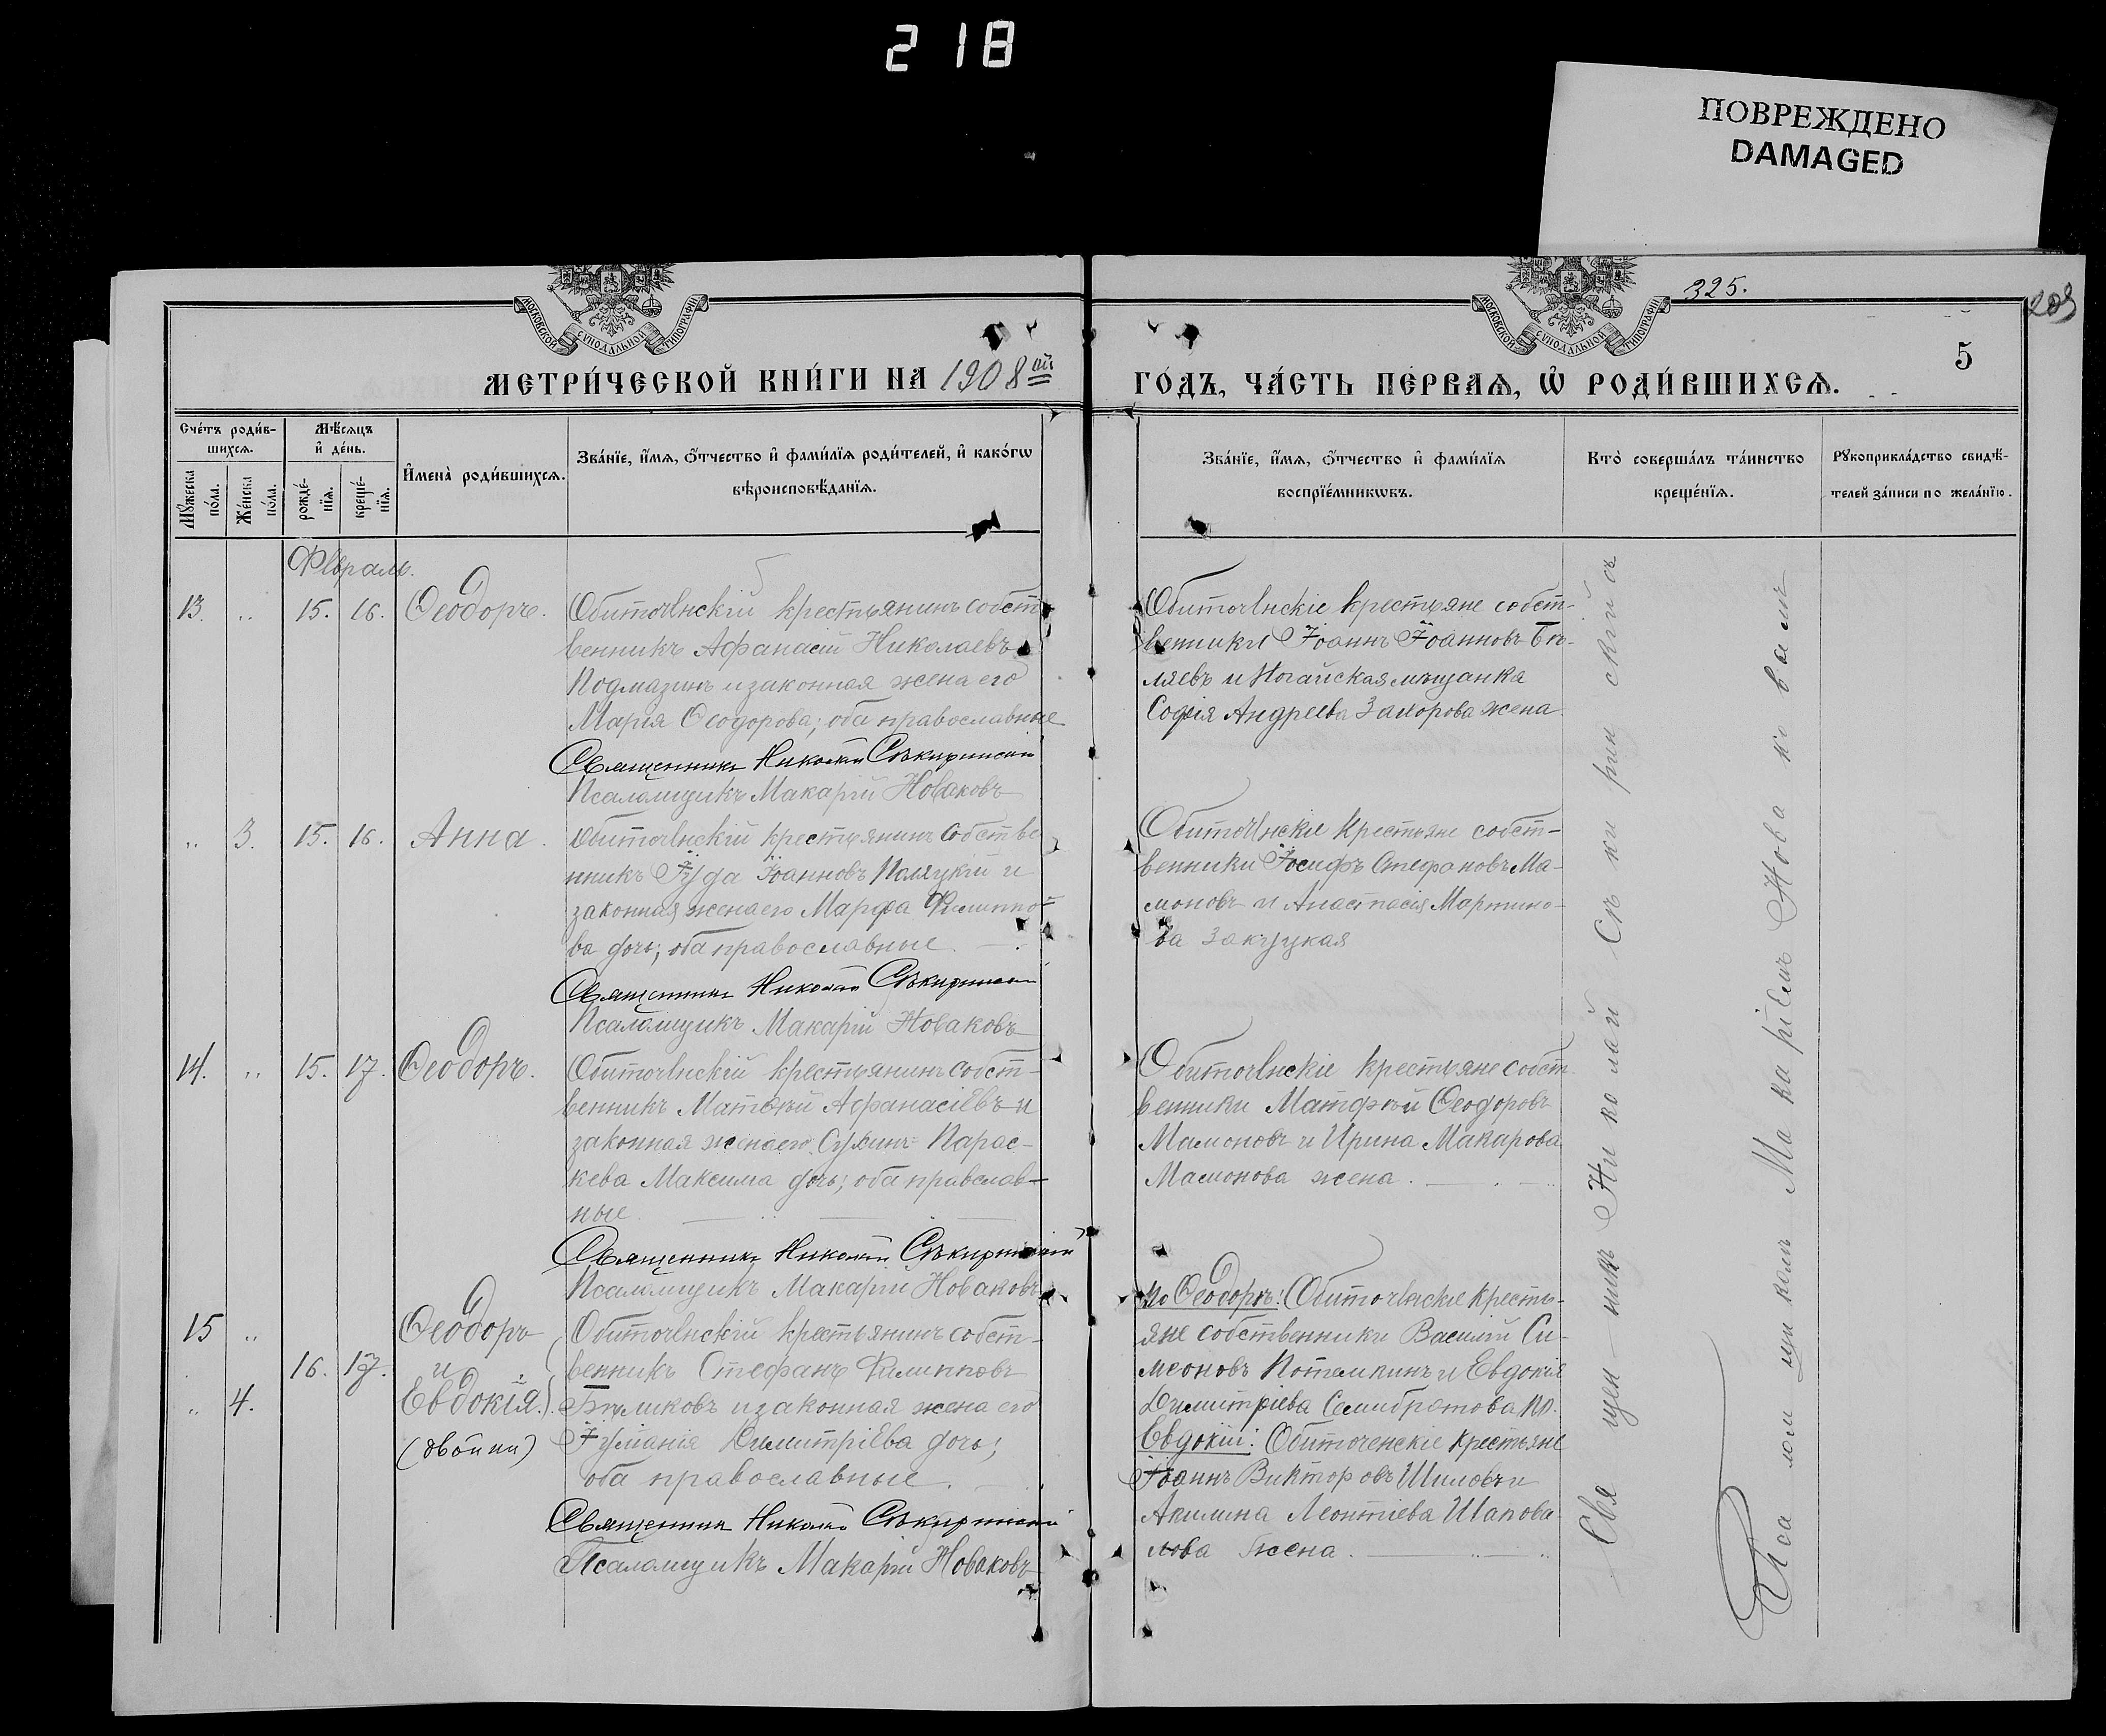 218
ПОВРЕЖДЕНО
DAMAGED
МОСКОВСКОЙ СУНОДАЛЬНОЙ ТИПОГРАФIИ
МОСКОВСКОЙ СУНОДАЛЬНОЙ ТИПОГРАФIИ
325.
209
5
МЕТРИ́ЧЕСКОЙ КНИ́ГИ НА 1908 ый
ГО́ДЪ, ЧА́СТЬ ПЕ́РВАѦ, Ѡ҆ РОДИ́ВШИХСѦ.
Сче́тъ роди́в-
шихсѧ.
Мꙋ́жеска по́ла.
Же́нска по́ла.
Мѣ́сѧцъ
и҆ де́нь.
рожде́-нїѧ.
креще́-нїѧ.
И҆мена̀ роди́вшихсѧ.
Зва́нїе, и҆́мѧ, ѻ҆́тчество и҆ фами́лїѧ роди́телей, и҆ како́гѡ
вѣроисповѣ́данїѧ.
Зва́нїе, и҆́мѧ, ѻ҆́тчество и҆ фами́лїѧ
воспрїе́мникѡвъ.
Кто̀ соверша́лъ та́инство
креще́нїѧ.
Рꙋкоприкла́дство свидѣ́-
телей за́писи по жела́нїю.
Февраль.
13. „ 15. 16. Ѳеодоръ.
Обиточенскій крестьянинъ собст-
венникъ Афанасій Николаевъ
Подмазинъ и законная жена его
Марія Ѳеодорова; оба православные
Священникъ Николай Сѣкиринскій
Псаломщикъ Макарій Новаковъ
Обиточенскіе крестьяне собст-
венники Іоаннъ Іоанновъ Бѣ-
ляевъ и Ногайская мѣщанка
Софія Андреева Заморова жена.
„ 3. 15. 16. Анна.
Обиточенскій крестьянинъ собстве
нникъ Іуда Іоанновъ Поляцкій и
законная жена его Марфа Филиппо-
ва дочь; оба православные.
Священникъ Николай Сѣкиринскій
Псаломщикъ Макарій Новаковъ
Обиточенскіе крестьяне собст-
венники Іосифъ Стефановъ Ма-
моновъ и Анастасія Мартино-
ва Закуцкая
14. „ 15. 17. Ѳеодоръ.
Обиточенскій крестьянинъ собст-
венникъ Матѳѣй Афанасіевъ и
законная жена его Сушинъ Парас-
кева Максима дочь; оба правслав-
ные
Священникъ Николай Сѣкиринскій
Псаломщикъ Макарій Новаковъ
Обиточенскіе крестьяне собст-
венники Матфѣй Ѳеодоровъ
Мамоновъ и Ирина Макарова
Мамонова жена.
15 „ Ѳеодоръ
16. 17. и
„ 4. Евдокія.
(двойни)
Обиточенскій крестьянинъ собст-
венникъ Стефанъ Филипповъ
Бѣликовъ и законная жена его
Іуліанія Димитріева дочь;
оба православные.
Священникъ Николай Сѣкиринскій
Псаломщикъ Макарій Новаковъ
по Ѳеодорѣ: Обиточенскіе кресть-
яне собственники Василій Си-
меоновъ Потемкинъ и Евдокія
Димитріева Семибратова по.
Евдокіи: Обиточенскіе крестьяне
Іоаннъ Викторовъ Шиловъ и
Акилина Леонтіева Шапова-
лова жена.
Священникъ Николай Сѣкиринскій съ
Псаломщикомъ Макаріемъ Новаковымъ